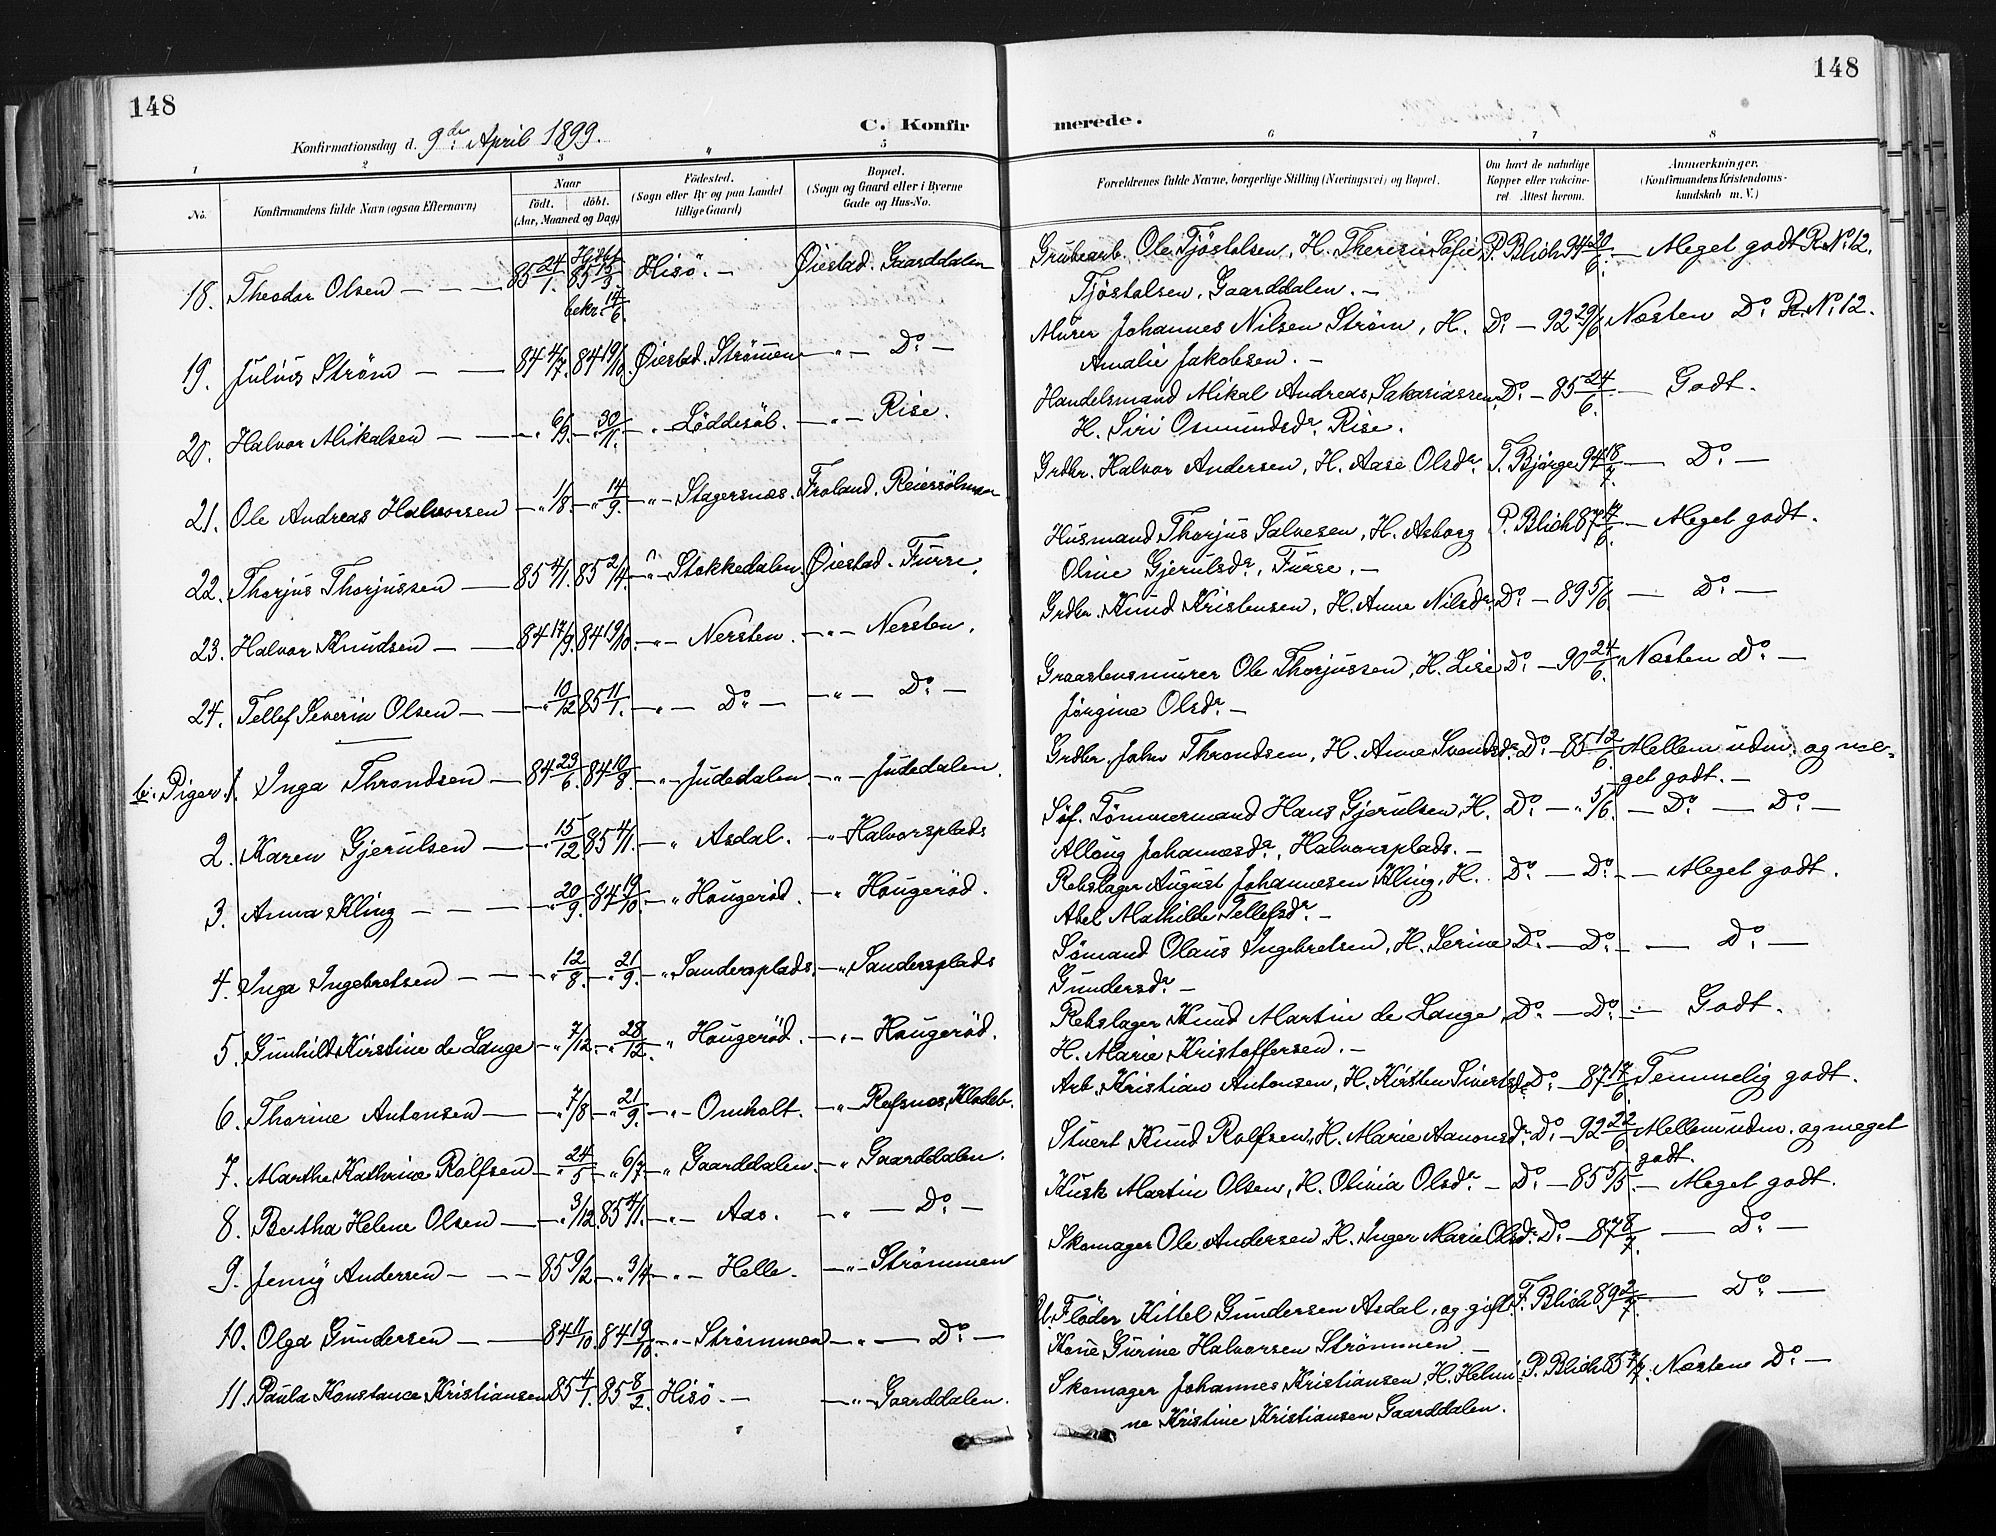 148
148
Konfirmationsdag d. 9de April 1899.
C. Konfirmerede.
1 2 3 " 5 6 7 8
No.
Konfirmandens fulde Navn (ogsaa Efternavn)
Naar
født. døbt.
(Aar, Maaned og Dag)
Fødested.
(Sogn eller By og paa Landet
tillige Gaard)
Bopæl.
(Sogn og Gaard eller i Byerne
Gade og Hus-No.
Forældrenes fulde Navne, borgerlige Stilling (Næringsvei) og Bopæl.
Om havt de naturlige
Kopper eller vakcine-
ret Attest herom.
Anmærkninger.
(Konfirmandens Kristendoms-
kundskab m. V.)
18. Theodor Olsen — — — 85 24/1. Hjdbt 85 15/3 bekr. 14/6. Hisö. — Øiestad. Gaarddalen Grubearb. Ole Tjöstolsen, H. Therese Sofie P. Blich 94 20/6. — Meget godt R. No 12.
Tjöstolsen, Gaarddalen. —
19. Julius Strøm — — 84 4/7. 84 19/10. Øiestad. Strömmen — " — Do — Murer Johannes Nilsen Strøm, H. Do — 92 29/6 Næsten Do R. No 12.
Amalie Jakobsen. —
20. Halvor Mikalsen — — " 6/9. — " 30/11. — " Löddesöl. — " — Rise. Handelsmand Mikal Andreas Sakariassen, Do — 85 24/6. — Godt.
H. Siri Osmundsdr. Rise.
21. Ole Andreas Halvorsen — " 1/8 — " 14/9. — " — Stagersnæs. Froland. Reiersölmoen Grdbr. Halvor Andersen, H. Aase Olsdr. T. Bjørge 94 18/7. — Do —
22. Thorjus Thorjussen — 85 4/1. 85 2/4. — " — Stokkedalen. Øiestad. Furre. Husmand Thorjus Salvesen, H. Asborg P. Blich 87 17/6. — Meget godt.
Oline Gjerulsdr, Furre. —
23. Halvor Knudsen — — 84 17/9. 84 19/10. — " — Nersten. — " — Nersten. Grdbr. Knud Kristensen, H. Anne Nilsdr. Do — 89 5/6 — Do —
24. Tellef Severin Olsen — — " 10/12 85 11/1. — " — Do — — " — Do — Graastensmurer Ole Thorjussen, H. Lise Do — 90 24/6. Næsten Do —
Jörgine Olsdr. —
b. Piger. 1. Inga Throndsen — 84 23/6. 84 10/8. — " Judedalen — " — Judedalen. Grdbr. John Throndsen, H. Anne Svendsdr. Do — 85 12/6 Mellem udm. og me-
get godt. —
2. Karen Gjerulsen — — " 15/12 85 4/1. — " Asdal. — " Halvorsplads Söf. Tömmermand Hans Gjerulsen, H. Do — " 5/6. — Do — Do —
Alloug Johannesdr, Halvorsplads. —
3. Anna Kling — — — " 20/9. 84 19/10. — " Hougeröd. — " Hougeröd. Rebslager August Johannesen Kling, H. Do — Do — Meget godt.
Abel Mathilde Tellefsdr. —
4. Inga Ingebretsen — — — " 12/8. — " 21/9. — " Sandersplads. — " Sandersplads Sömand Olaus Ingebretsen, H. Serine Do — Do — — Do —
Gundersdr. —
5. Gunhild Kirstine de Lange — " 7/12. — " 28/12. — " Hougeröd. — " — Hougeröd. Rebslager Knud Martin de Lange, Do — Do — Godt.
H. Marie Kristoffersen. —
6. Thorine Antonsen — — " 7/8 — " 21/9. — " — Omholt. — " — Refsnes, Klodeb. Arb. Kristian Antonsen, H. Kirsten Sivertsdr Do — 87 17/6 Temmelig godt.
7. Marthe Kathrine Rolfsen — " 24/5 — " 6/7 — " Gaarddalen. — " Gaarddalen. Stuert Knud Rolfsen, H. Marie Aanonsdr. Do — 92 22/6 Mellem udm. og meget
godt.
8. Bertha Helene Olsen — — " 3/12. 85 4/1. — " — Aas. — " — Do — Kusk Martin Olsen, H. Olivia Olsdr. — Do — 85 5/5. — Meget godt.
9. Jenny Andersen — — — 85 9/2. — " 3/4. — " — Helle. — " — Strömmen Skomager Ole Andersen, H. Inger Marie Olsdr. Do — 87 8/7. — Do —
10. Olga Gundersen — — 84 11/10. 84 19/10. — " — Strömmen — " — Do — Flöder Kittel Gundersen Asdal, og gift F. Blich 89 2/7. — Do —
Kone Gurine Halvorsen Strömmen. —
11. Paula Konstance Kristiansen 85 4/1. 85 8/2. Hisö. — — " — Gaarddalen. Skomager Johannes Kristiansen, H. Helmi- P. Blich 85 Næsten Do —
ne Kristine Kristiansen Gaarddalen.